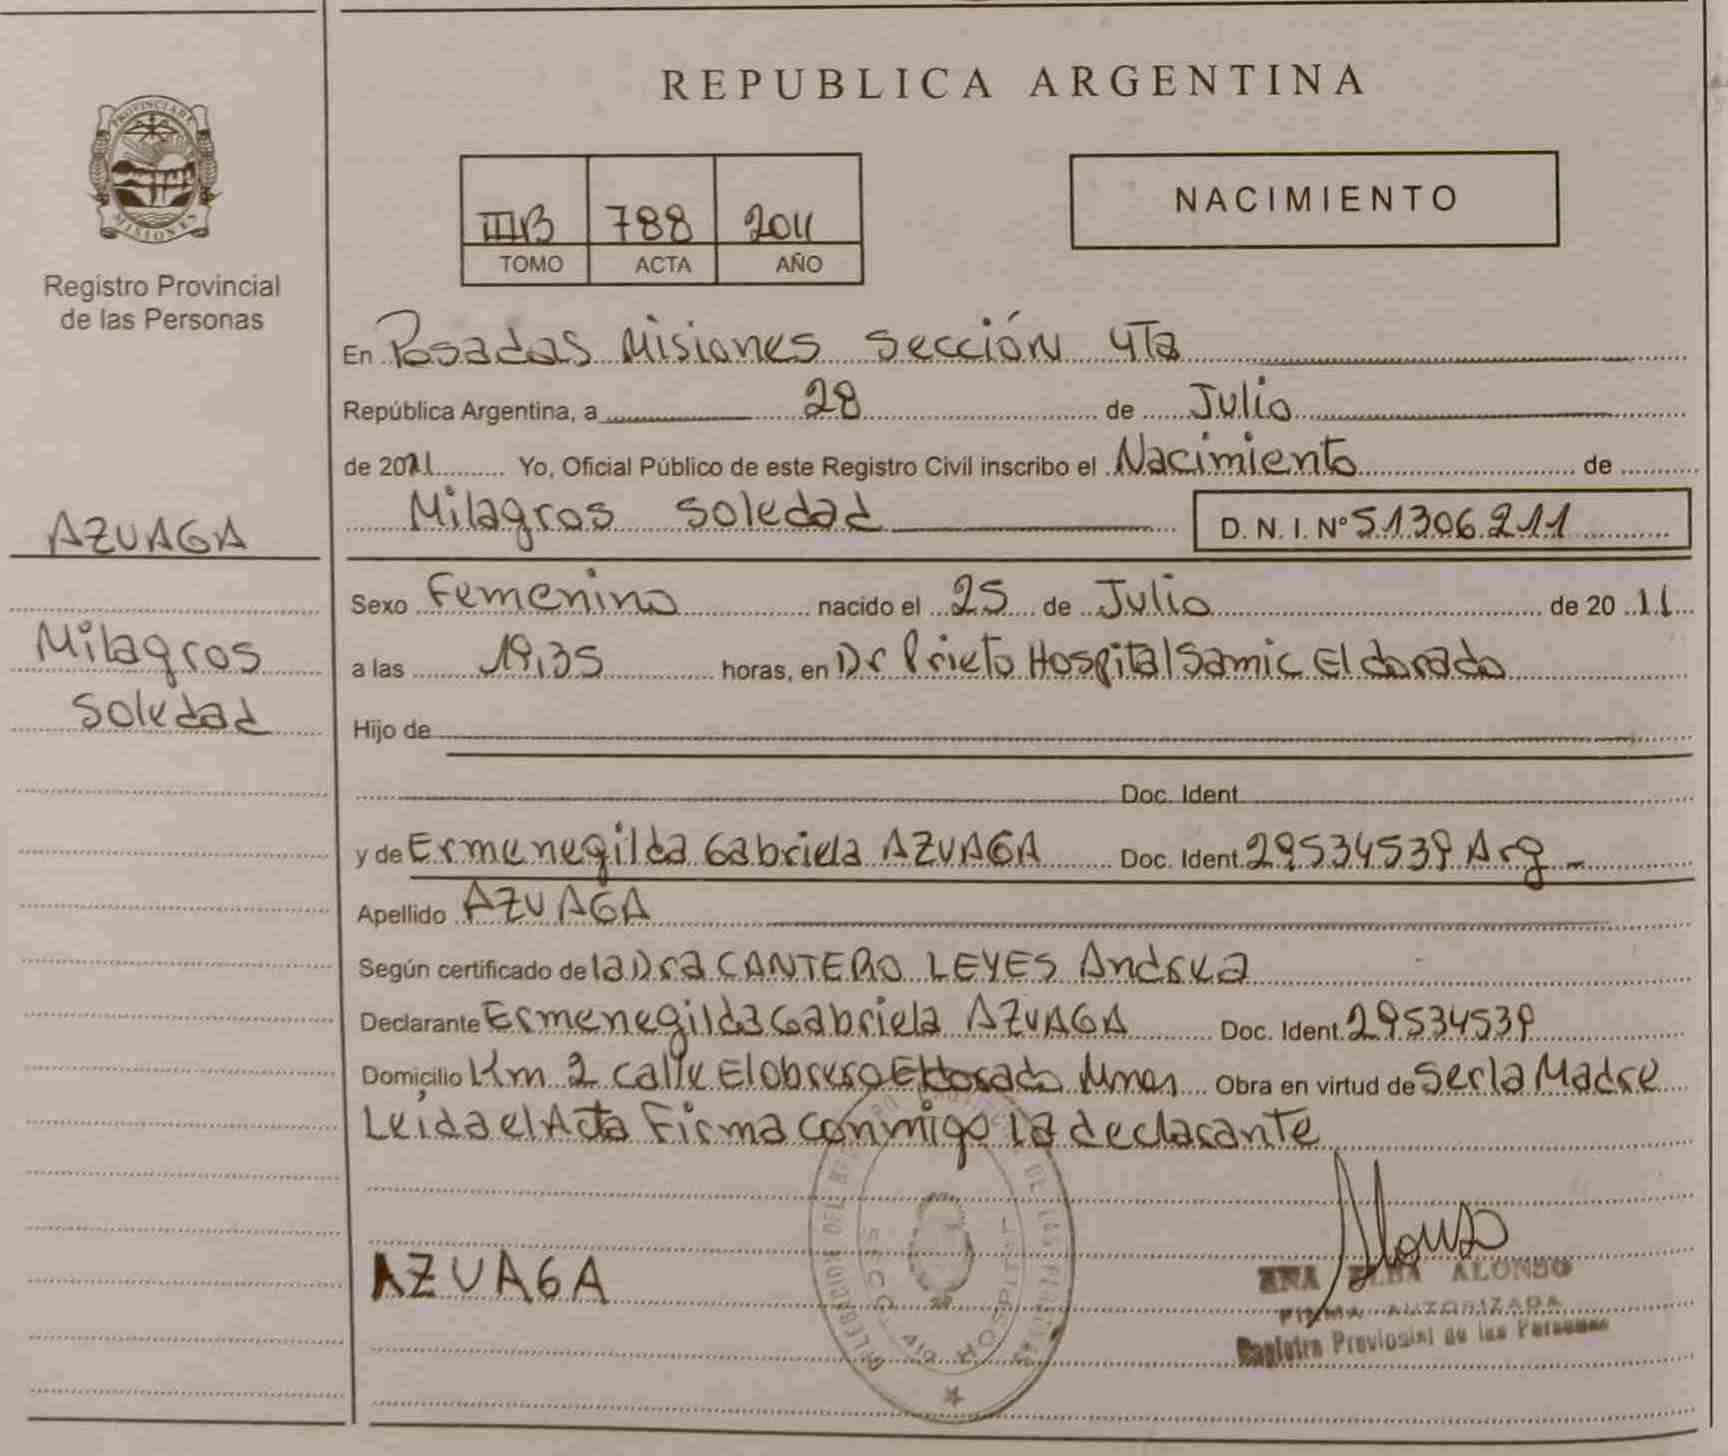 PROVINCIA DE
MISIONES
Registro Provincial
de las Personas
AZUAGA
Milagros
Soledad
REPUBLICA ARGENTINA
IIIB 788 2011
TOMO ACTA AÑO
NACIMIENTO
En Posadas Misiones sección 4Ta
República Argentina, a 28 de Julio
de 2011 Yo, Oficial Público de este Registro Civil inscribo el Nacimiento de
Milagros Soledad D. N. I. Nº 51306.211
Sexo Femenino nacido el 25 de Julio de 20 11
a las 19,35 horas, en Dr Prieto Hospital Samic Eldorado
Hijo de
Doc. Ident.
y de Ermenegilda Gabriela AZUAGA Doc. Ident. 29534539 Arg -
Apellido AZUAGA
Según certificado de la Dra CANTERO LEYES Andrea
Declarante Ermenegilda Gabriela AZUAGA Doc. Ident. 29534539
Domicilio Km 2 calle El obrero Eldorado Mnes Obra en virtud de Ser la Madre
Leida el Acta Firma conmigo la declarante
AZUAGA
Alonso
ANA ELBA ALONSO
FIRMA AUTORIZADA
Registro Provincial de las Personas